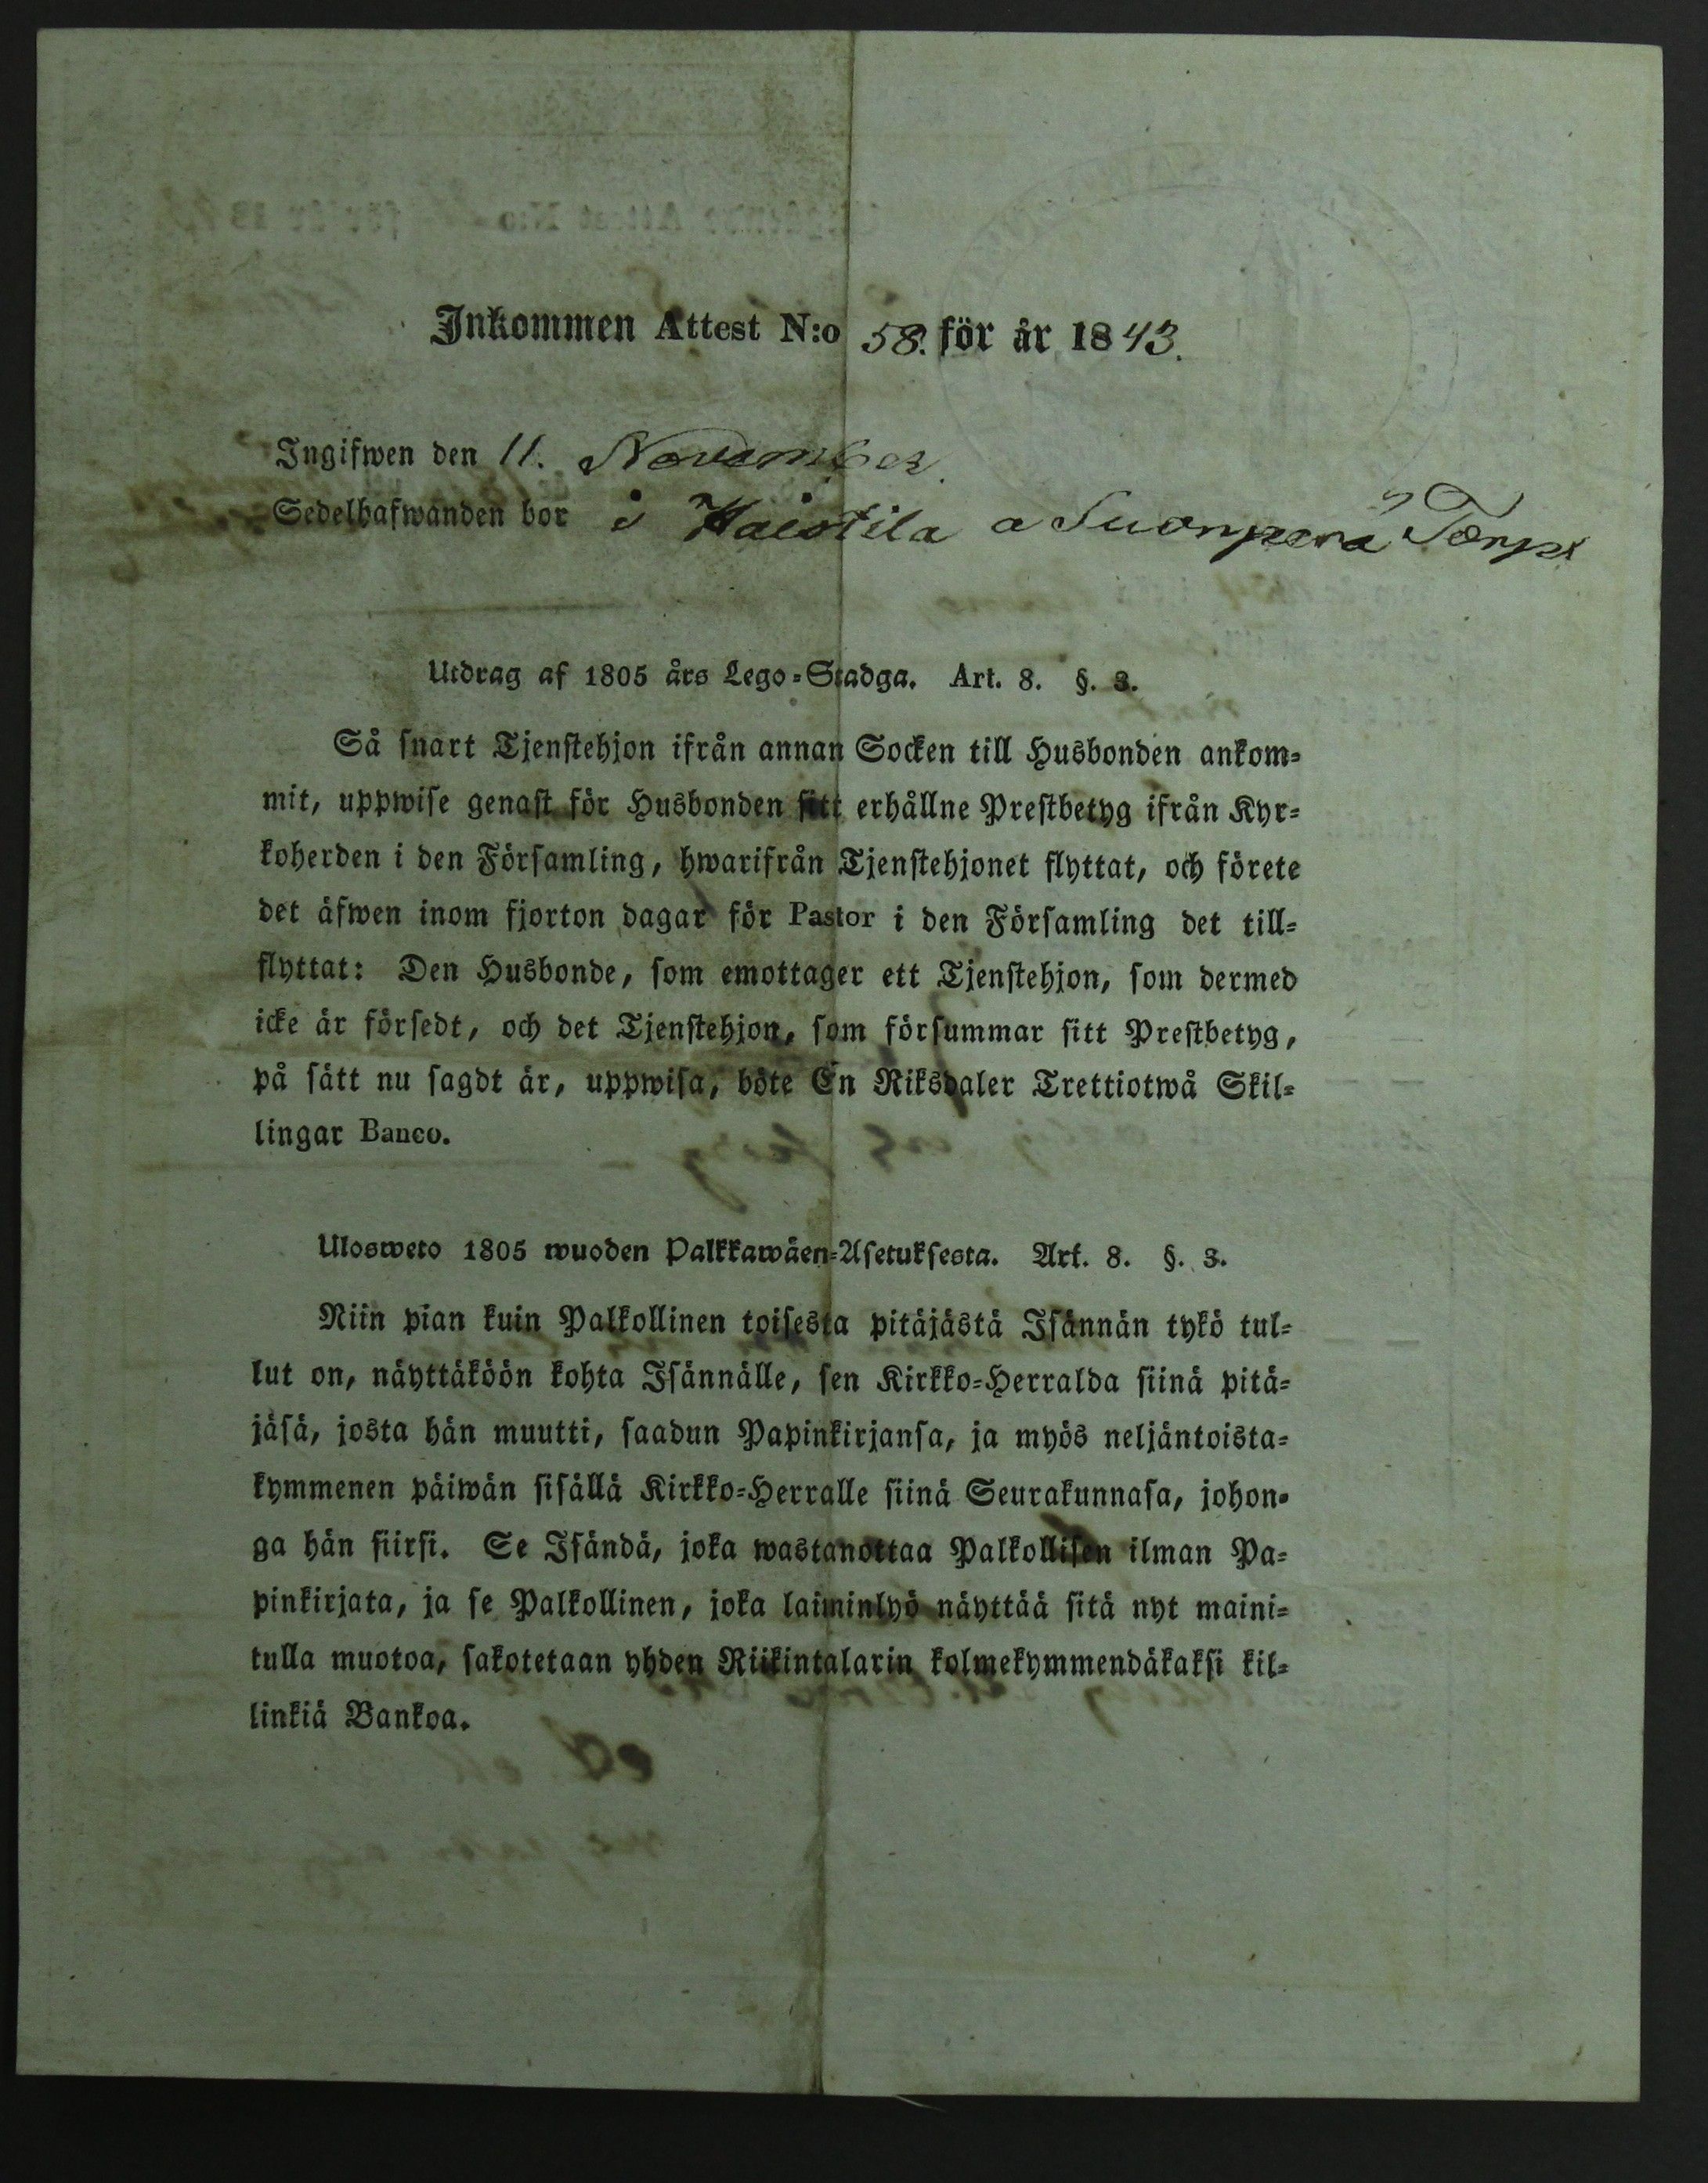 Inkommen Attest N:o 58. för år 1843.
Ingifwen den 11. November.
Sedelhafwanden bor i Haistila a Suonperä Torp
Utdrag af 1805 års Lego-Stadga. Art. 8. §. 3.
Så snart Tjenstehjon ifrån annan Socken till Husbonden ankom-
mit, uppwise genast för Husbonden sitt erhållne Prestbetyg ifrån Kyr-
koherden i den Församling, hwarifrån Tjenstehjonet flyttat, och förete
det äfwen inom fjorton dagar för Pastor i den Församling det till-
flyttat: Den Husbonde, som emottager ett Tjenstehjon, som dermed
icke är försedt, och det Tjenstehjon, som försummar sitt Prestbetyg,
på sätt nu sagdt är, uppwisa, böte En Riksdaler Trettiotwå Skil-
lingar Banco.
Ulosweto 1805 wuoden Palkkawäen-Asetuksesta. Art. 8. §. 3.
Niin pian kuin Palkollinen toisesta pitäjästä Isännän tykö tul-
lut on, näyttäköön kohta Isännälle, sen Kirkko-Herralda siinä pitä-
jäsä, josta hän muutti, saadun Papinkirjansa, ja myös neljäntoista-
kymmenen päiwän sisällä Kirkko-Herralle siinä Seurakunnasa, johon-
ga hän siirsi. Se Isändä, joka wastanottaa Palkollisen ilman Pa-
pinkirjata, ja se Palkollinen, joka laiminlyö näyttää sitä nyt maini-
tulla muotoa, sakotetaan yhden Riikintalarin kolmekymmendäkaksi kil-
linkiä Bankoa.